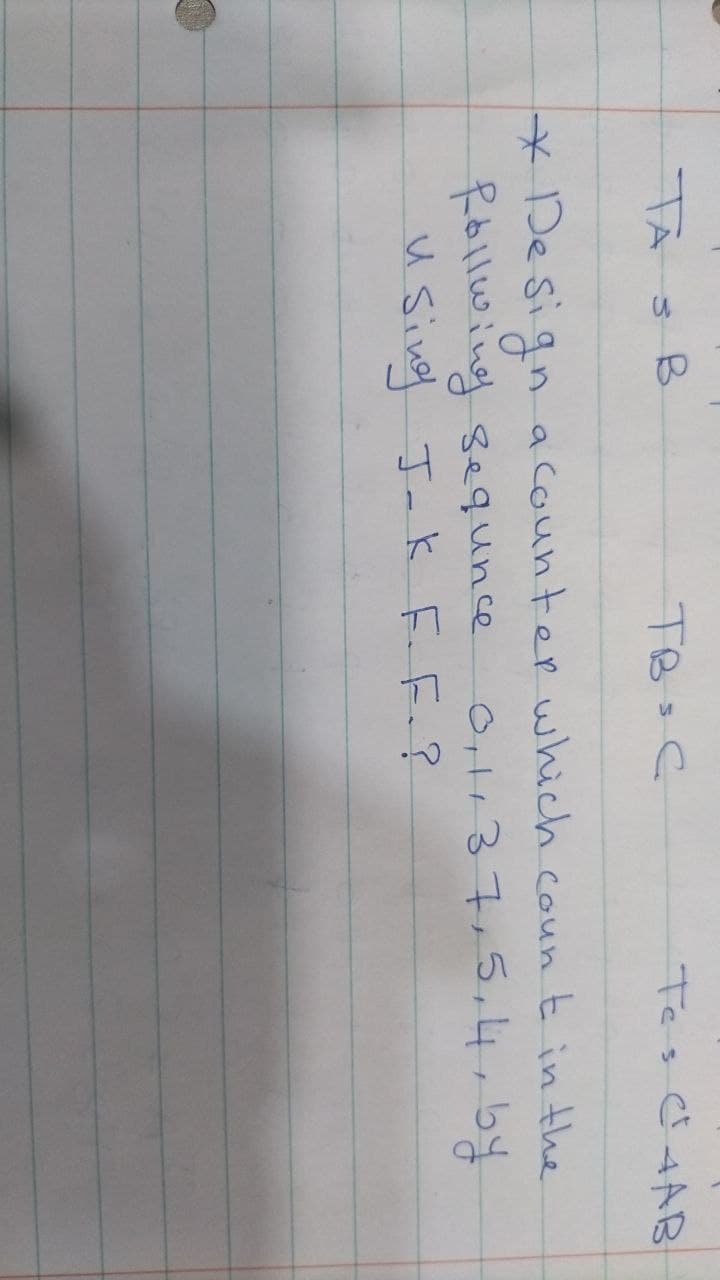 TA = B TB = C Tc = C + AB
* Design a counter which count in the
follwing sequnce 0,1,3 7,5,4, by
using J-K F.F.?